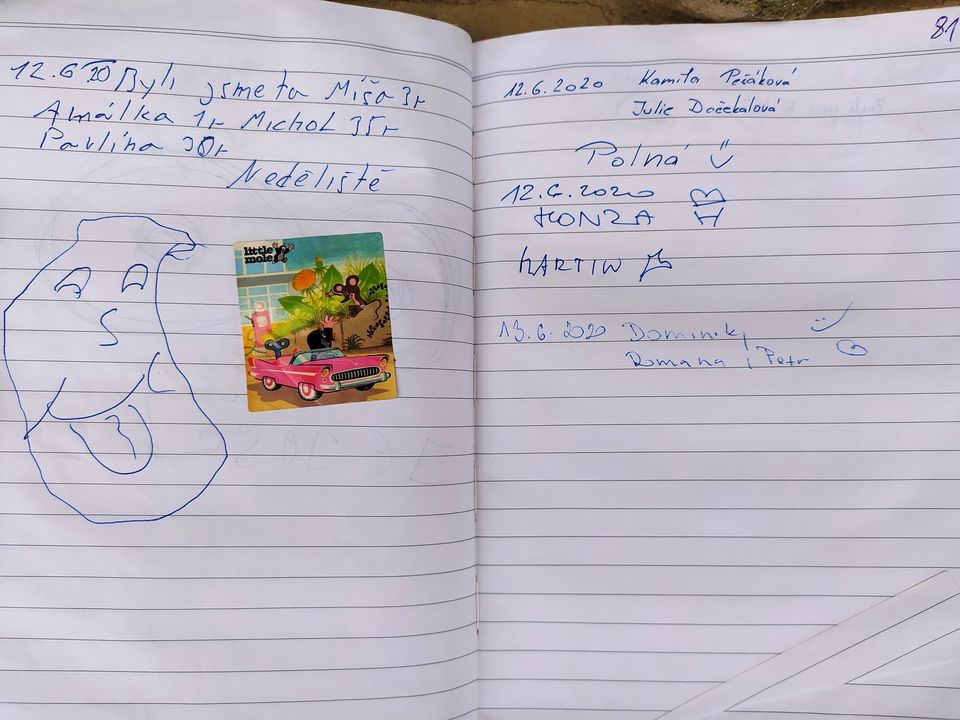 12.6 20 Byli jsme tu Míša 3r
Amálka 1r Michal 35r
Pavlína 30r
Neděliště
little
mole
81
12.6.2020 Kamila Pešáková
Julie Dočekalová
Polná
12.6.2020
HONZA
MARTIN
13.6.2020 Dominik,
Romana i Petr